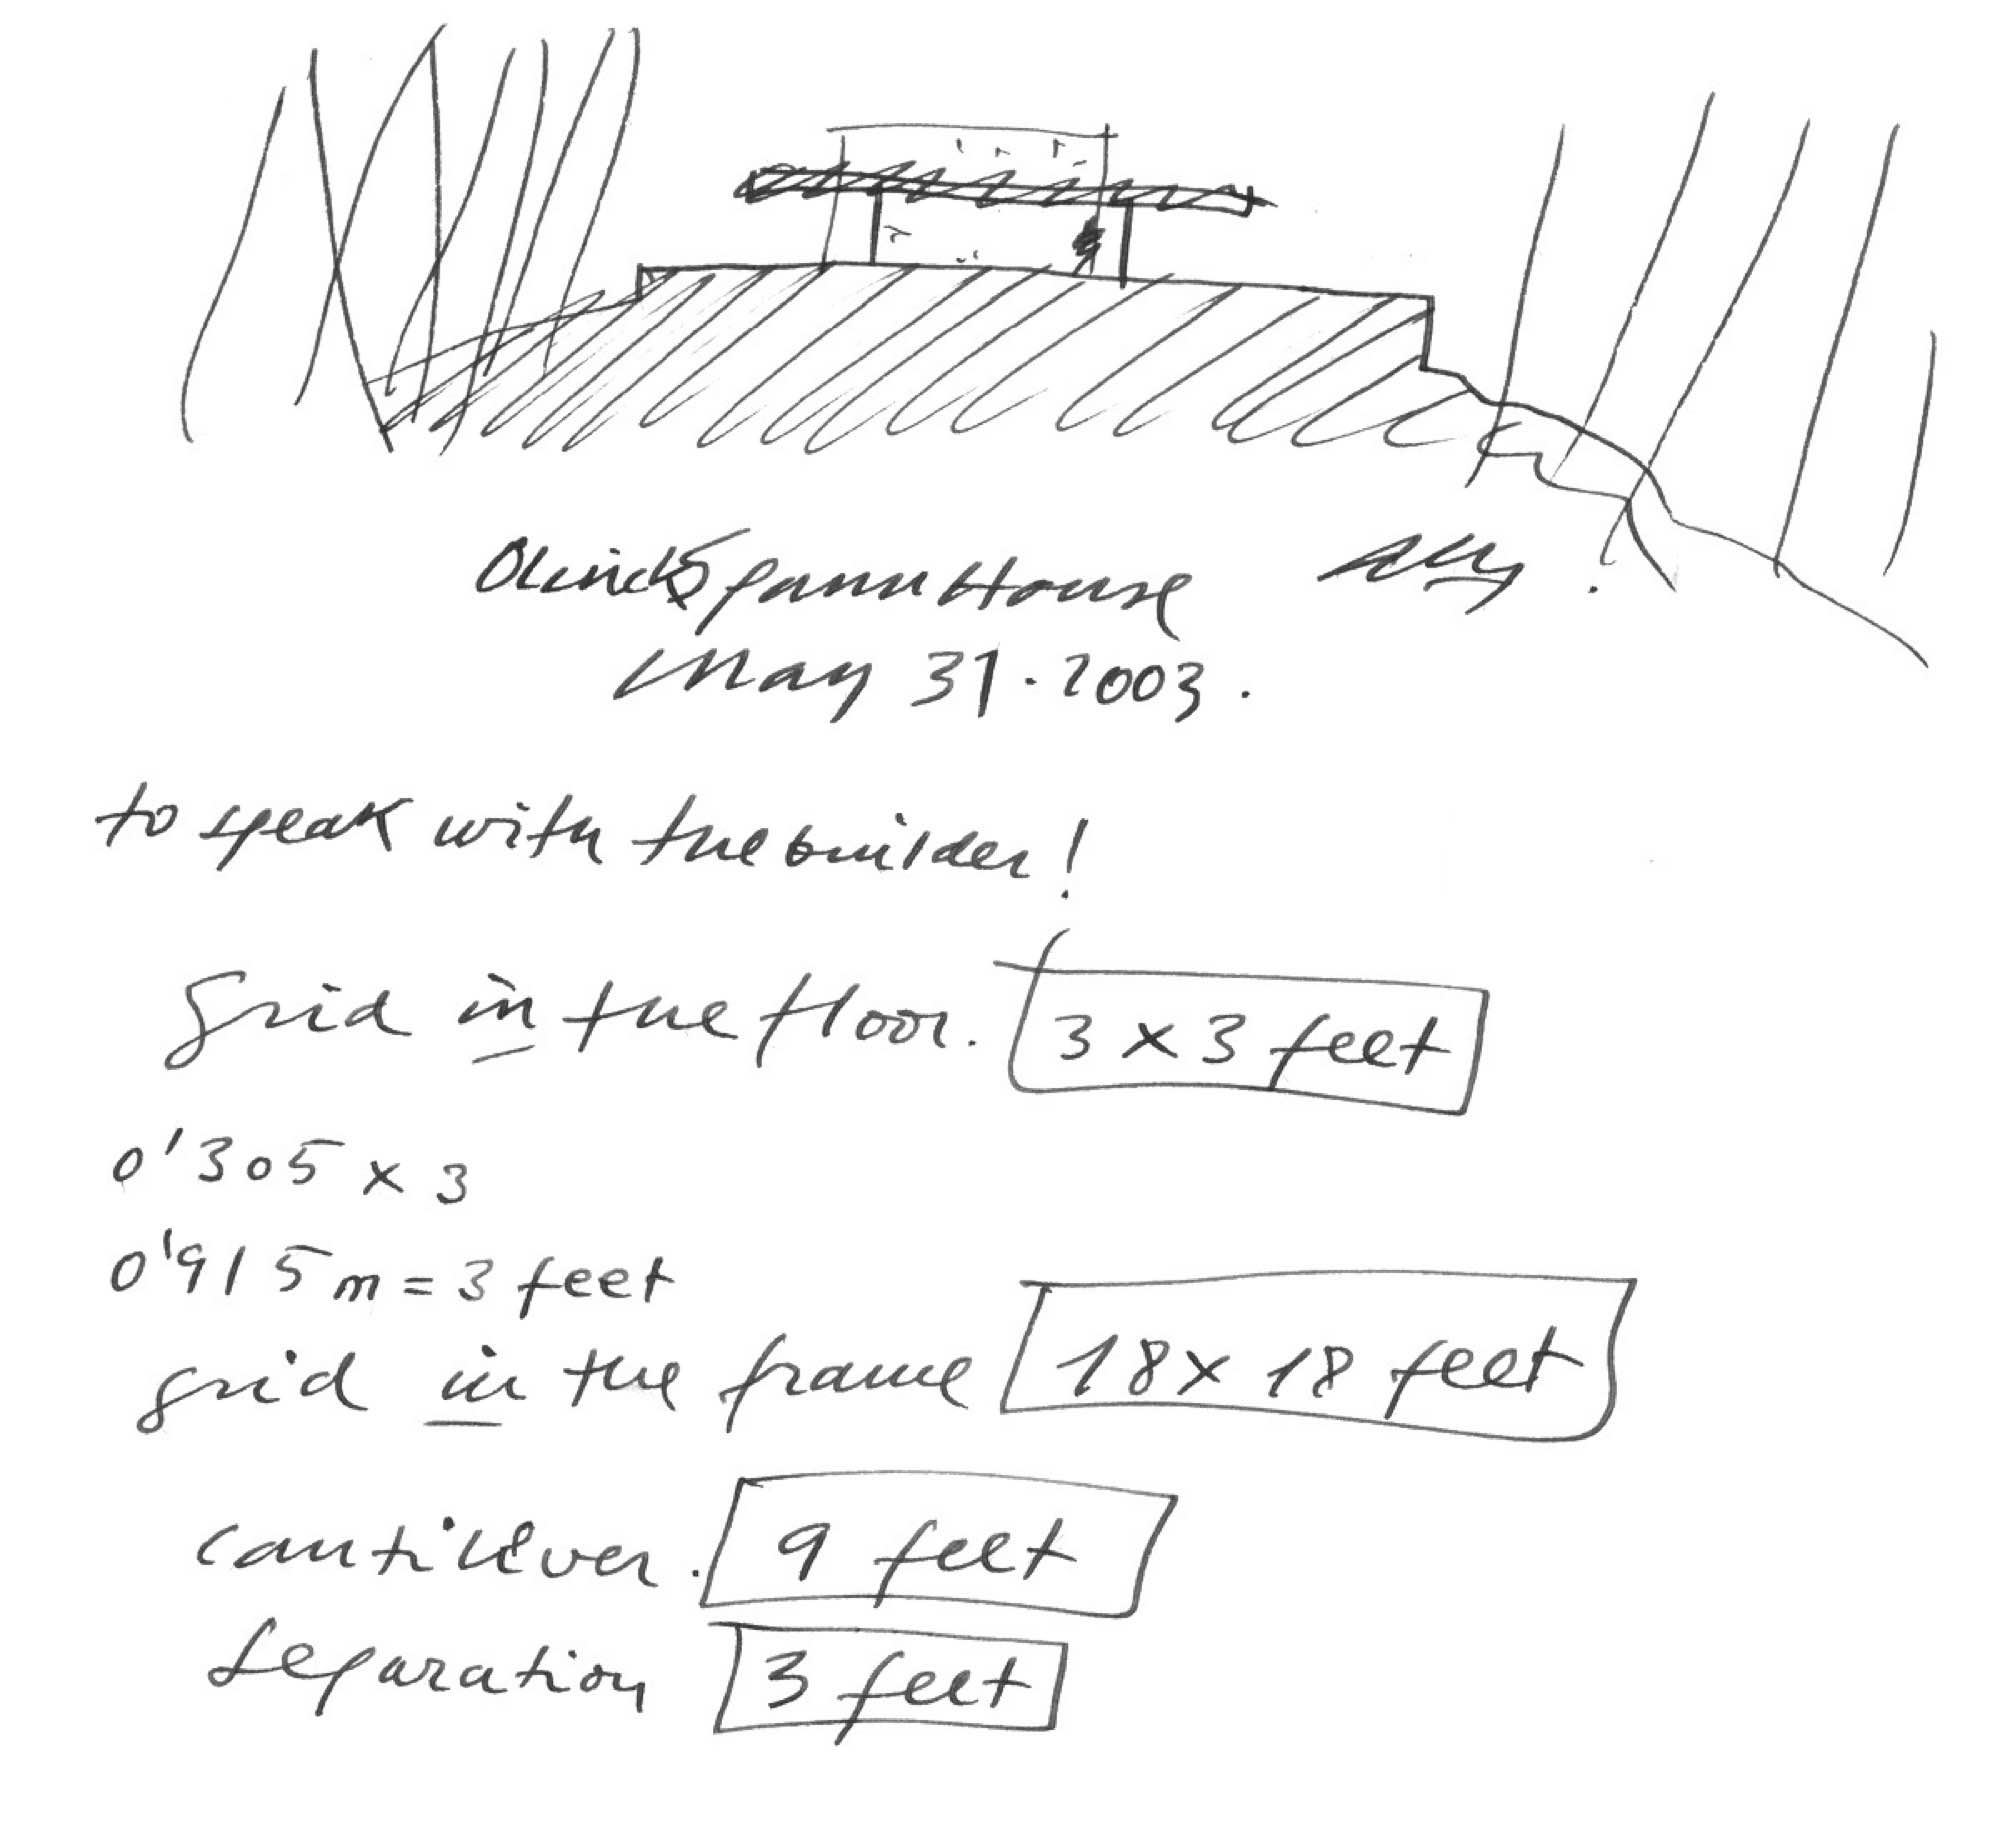 OlnickSpannHouse
May 31.2003.
to speak with the builder!
grid in the floor. 3 x 3 feet
0'305 x 3
0'915 m = 3 feet
grid in the frame 18 x 18 feet
cantilever. 9 feet
Separation 3 feet